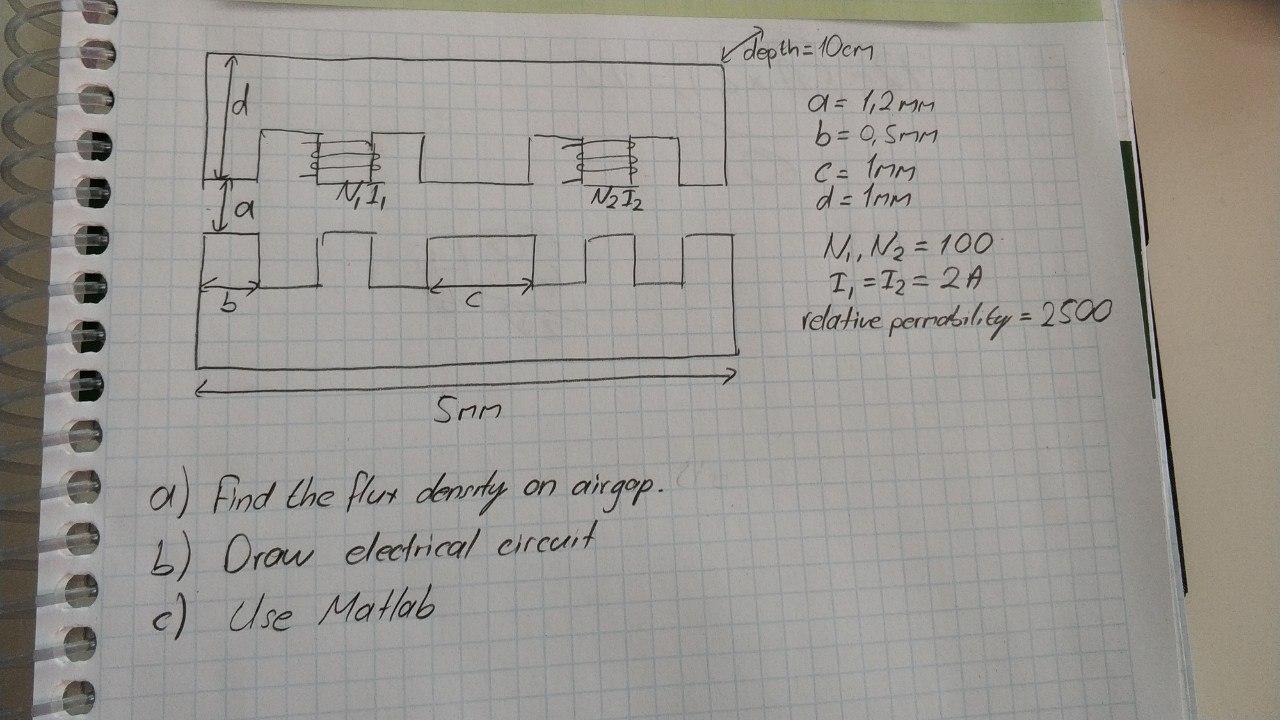 depth=10cm
d
a = 1,2mm
b = 0,5mm
c = 1mm
d = 1mm
N₁I₁
N₂I₂
a
N₁,N₂ = 100
I₁ = I₂ = 2A
b
c
relative permability = 2500
5mm
a) Find the flux density on airgap.
b) Draw electrical circuit
c) Use Matlab